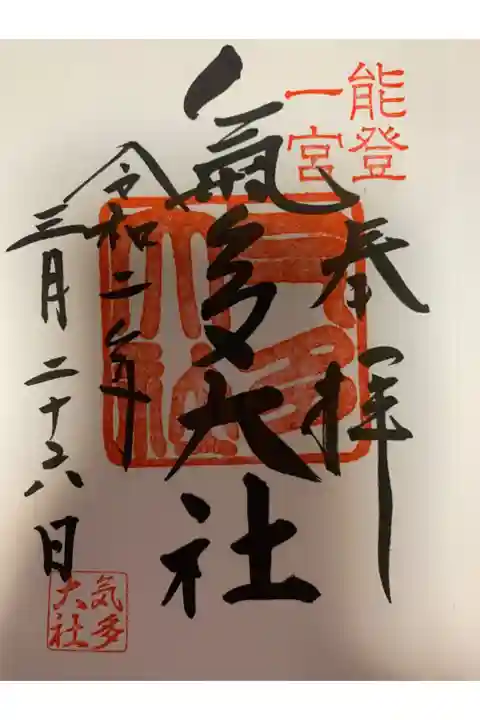 能登
一宮
奉拝
氣多大社
令和二年
三月二十六日
気多
大社